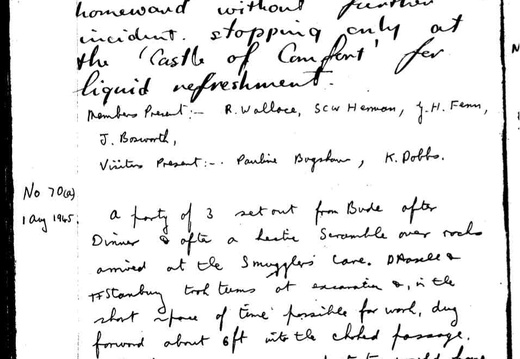 homeward without further
incident. stopping only at
the 'Castle of Comfort' for
liquid refreshment.
Members Present:- R. Wallace, SCW Herman, J.H. Fenn,
J. Bosworth,
Visitors Present:-. Pauline Bagshaw, K. Dobbs.
No 70(a)
1 Aug 1965.
A party of 3 set out from Bude after
Dinner & after a hectic Scramble over rocks
arrived at the Smugglers' Cave. &
Stanbury took turns at excavation &, in the
short space of time possible for work, dug
forward about 6ft into the choked passage.